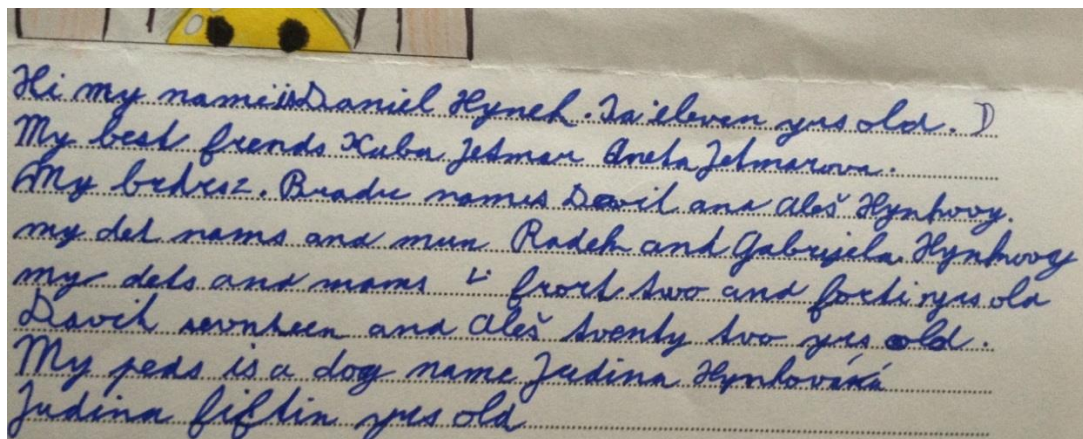 Hi my name is Daniel Hynek. Ia eleven yrs old. D
My best frends Kuba Jetmar Aneta Jetmarova.
My brdrsz. Bradr names David and Aleš Hynkovy.
my ded nams and mun Radek and Gabrijela Hynkovy
my deds and mams frort two and forti yrs old
David sevnteen and Aleš tventy tvo yrs old.
My peds is a dog name Judina Hynkováká
Judina fiftin yrs old